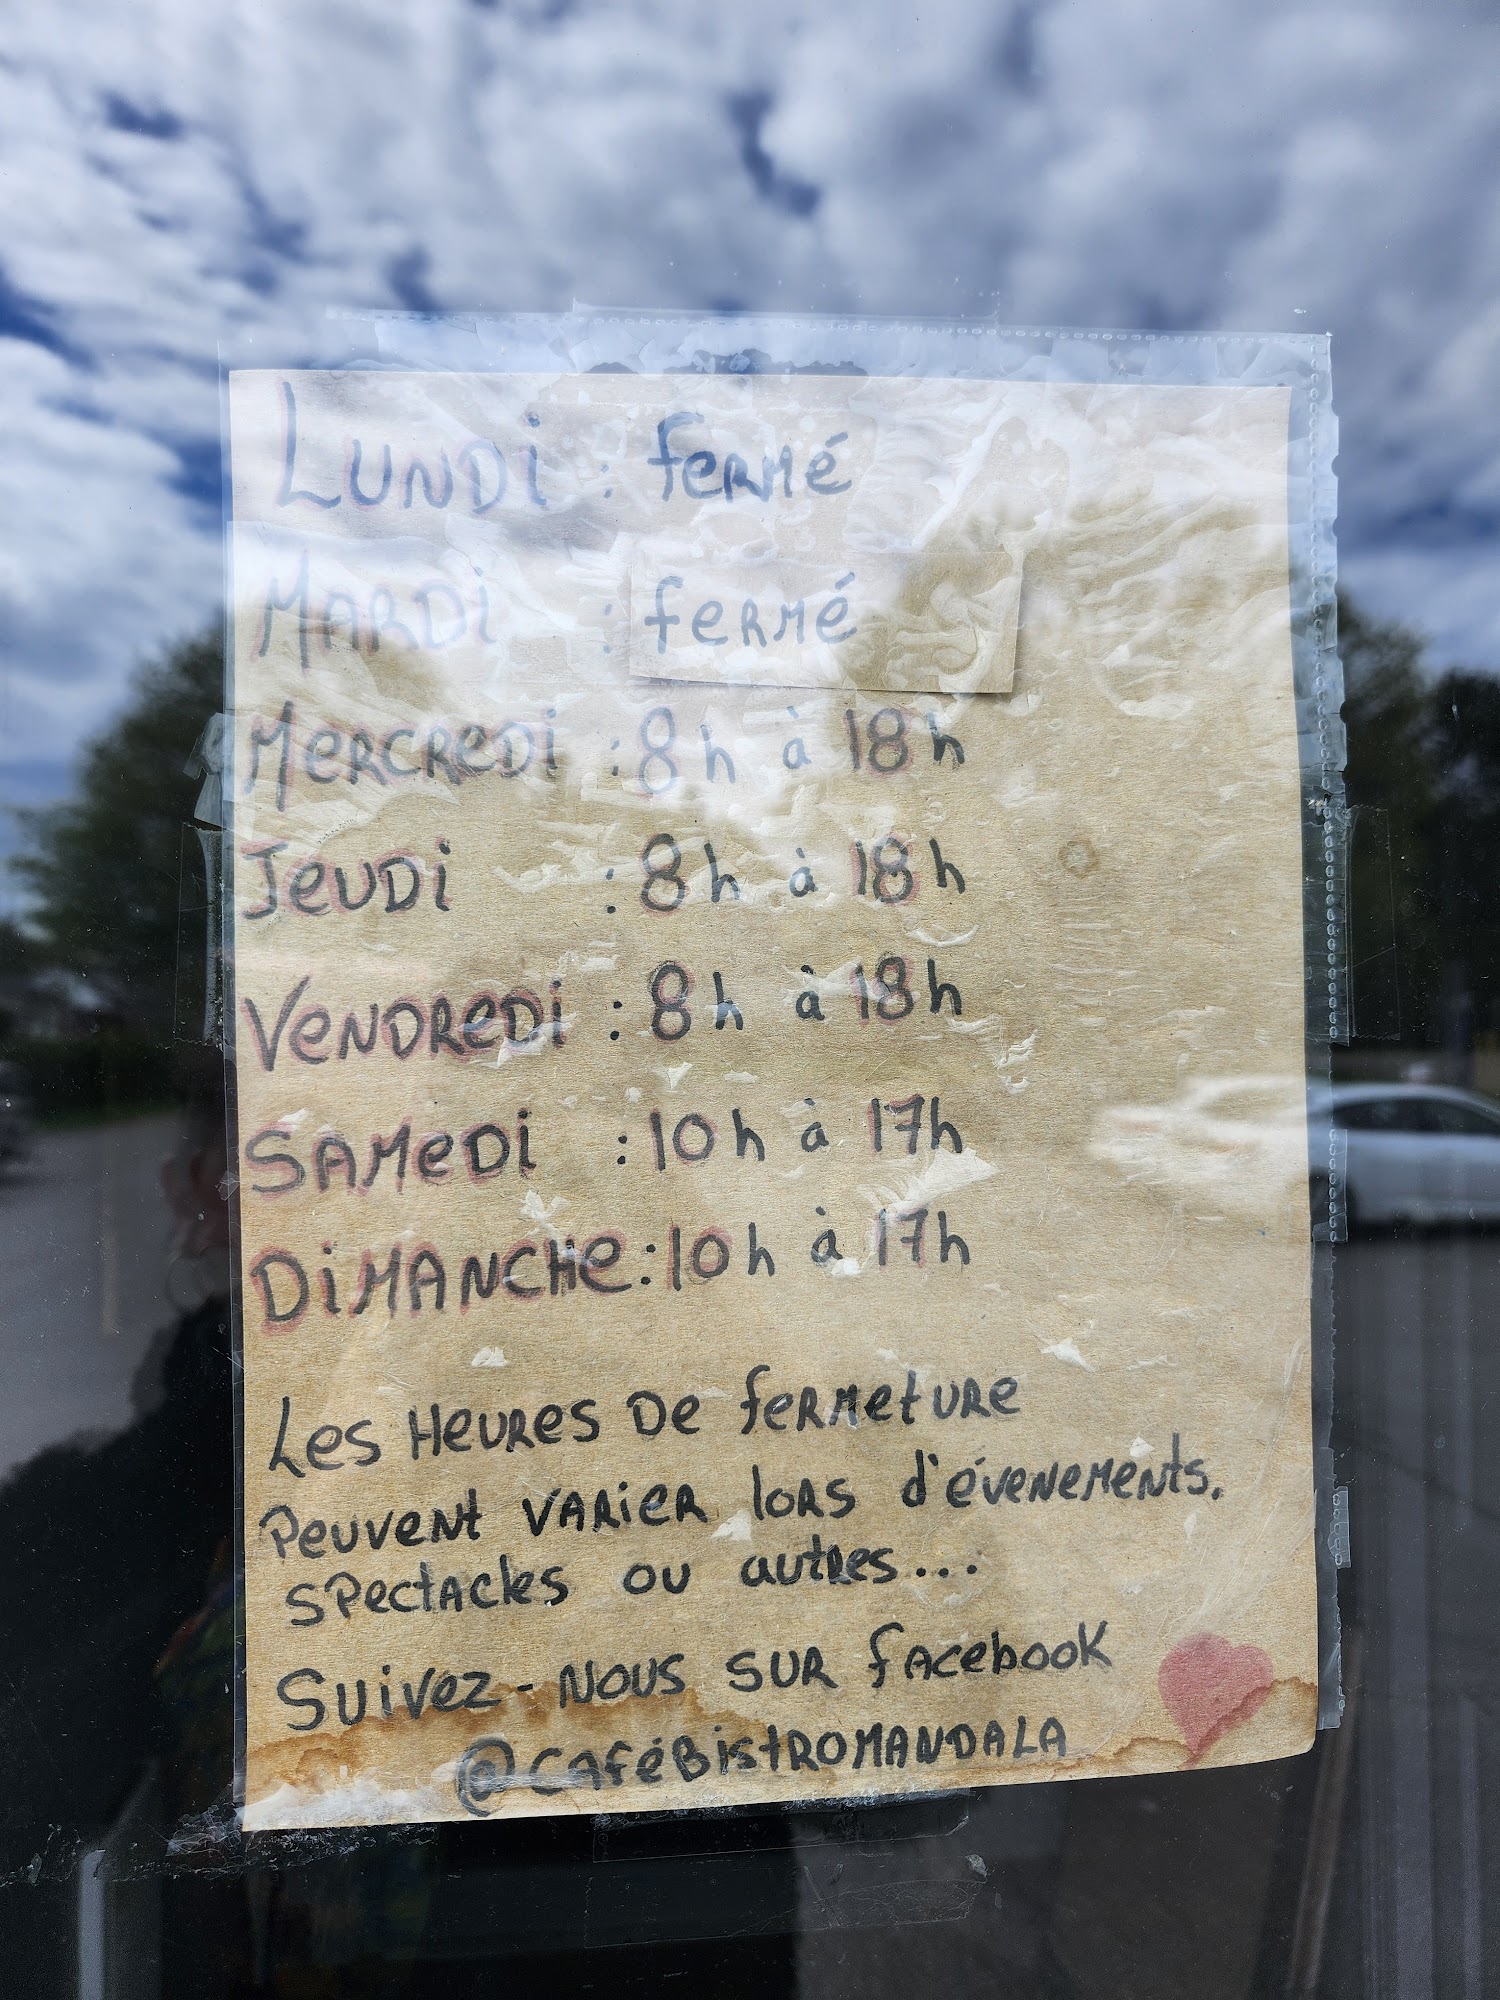 LUNDi : fermé
MARDi : fermé
MERCREDi : 8h à 18h
JEUDi : 8h à 18h
VENDREDi : 8h à 18h
SAMEDi : 10h à 17h
DiMANCHE : 10h à 17h
Les Heures De fermeture
Peuvent varier lors d'évenements.
spectacles ou autres...
Suivez-nous sur facebook
@CaféBistROMANDALA